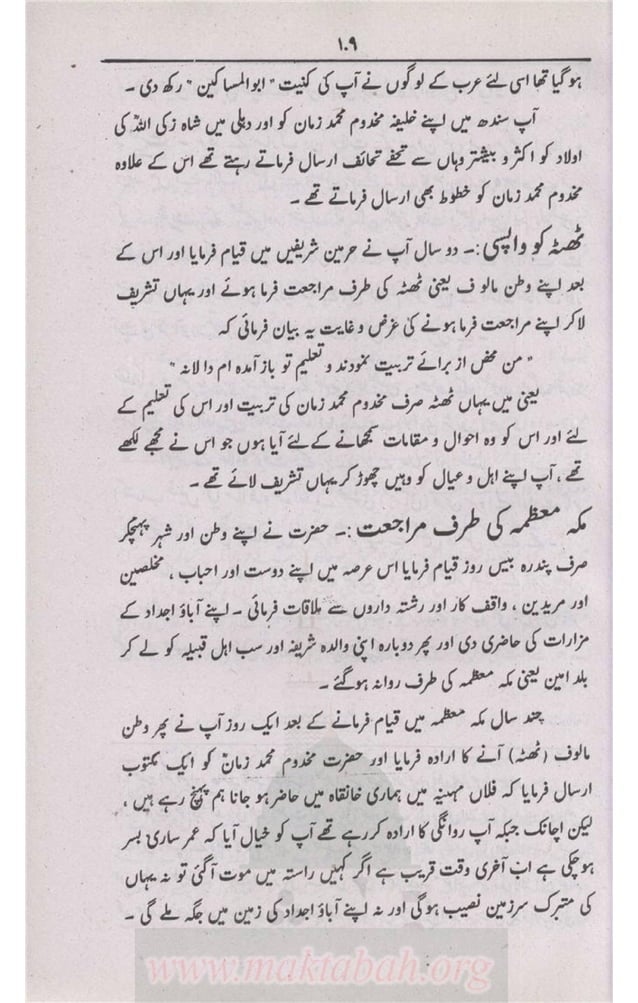 ۱۰۹
ہو گیا تھا اسی لئے عرب کے لوگوں نے آپ کی کنیت "ابو المساکین" رکھ دی ۔
آپ سندھ میں اپنے خلیفہ مخدوم محمد زمان کو اور دہلی میں شاہ زکی اللہؒ کی
اولاد کو اکثر و بیشتر وہاں سے تحفے تحائف ارسال فرماتے رہتے تھے اس کے علاوہ
مخدوم محمد زمان کو خطوط بھی ارسال فرماتے تھے ۔
ٹھٹہ کو واپسی :۔ دو سال آپ نے حرمین شریفین میں قیام فرمایا اور اس کے
بعد اپنے وطن مالوف یعنی ٹھٹہ کی طرف مراجعت فرما ہوئے اور یہاں تشریف
لا کر اپنے مراجعت فرما ہونے کی غرض و غایت یہ بیان فرمائی کہ
"من محض از برائے تربیت نمودند و تعلیم تو باز آمدہ ام دالانہ"
یعنی میں یہاں ٹھٹہ صرف مخدوم محمد زمان کی تربیت اور اس کی تعلیم کے
لئے اور اس کو وہ احوال و مقامات سمجھانے کے لئے آیا ہوں جو اس نے مجھے لکھے
تھے ، آپ اپنے اہل و عیال کو وہیں چھوڑ کر یہاں تشریف لائے تھے ۔
مکہ معظمہ کی طرف مراجعت :۔ حضرت نے اپنے وطن اور شہر پہنچکر
صرف پندرہ بیس روز قیام فرمایا اس عرصہ میں اپنے دوست اور احباب ، مخلصین
اور مریدین ، واقف کار اور رشتہ داروں سے ملاقات فرمائی ۔ اپنے آباؤ اجداد کے
مزارات کی حاضری دی اور پھر دوبارہ اپنی والدہ شریفہ اور سب اہل قبیلہ کو لے کر
بلد امین یعنی مکہ معظمہ کی طرف روانہ ہو گئے ۔
چند سال مکہ معظمہ میں قیام فرمانے کے بعد ایک روز آپ نے پھر وطن
مالوف (ٹھٹہ) آنے کا ارادہ فرمایا اور حضرت مخدوم محمد زمانؒ کو ایک مکتوب
ارسال فرمایا کہ فلاں مہینہ میں ہماری خانقاہ میں حاضر ہو جانا ہم پہنچ رہے ہیں ،
لیکن اچانک جبکہ آپ روانگی کا ارادہ کر رہے تھے آپ کو خیال آیا کہ عمر ساری بسر
ہو چکی ہے اب آخری وقت قریب ہے اگر کہیں راستہ میں موت آگئی تو نہ یہاں
کی متبرک سرزمین نصیب ہوگی اور نہ اپنے آباؤ اجداد کی زمین میں جگہ ملے گی ۔
www.maktabah.org